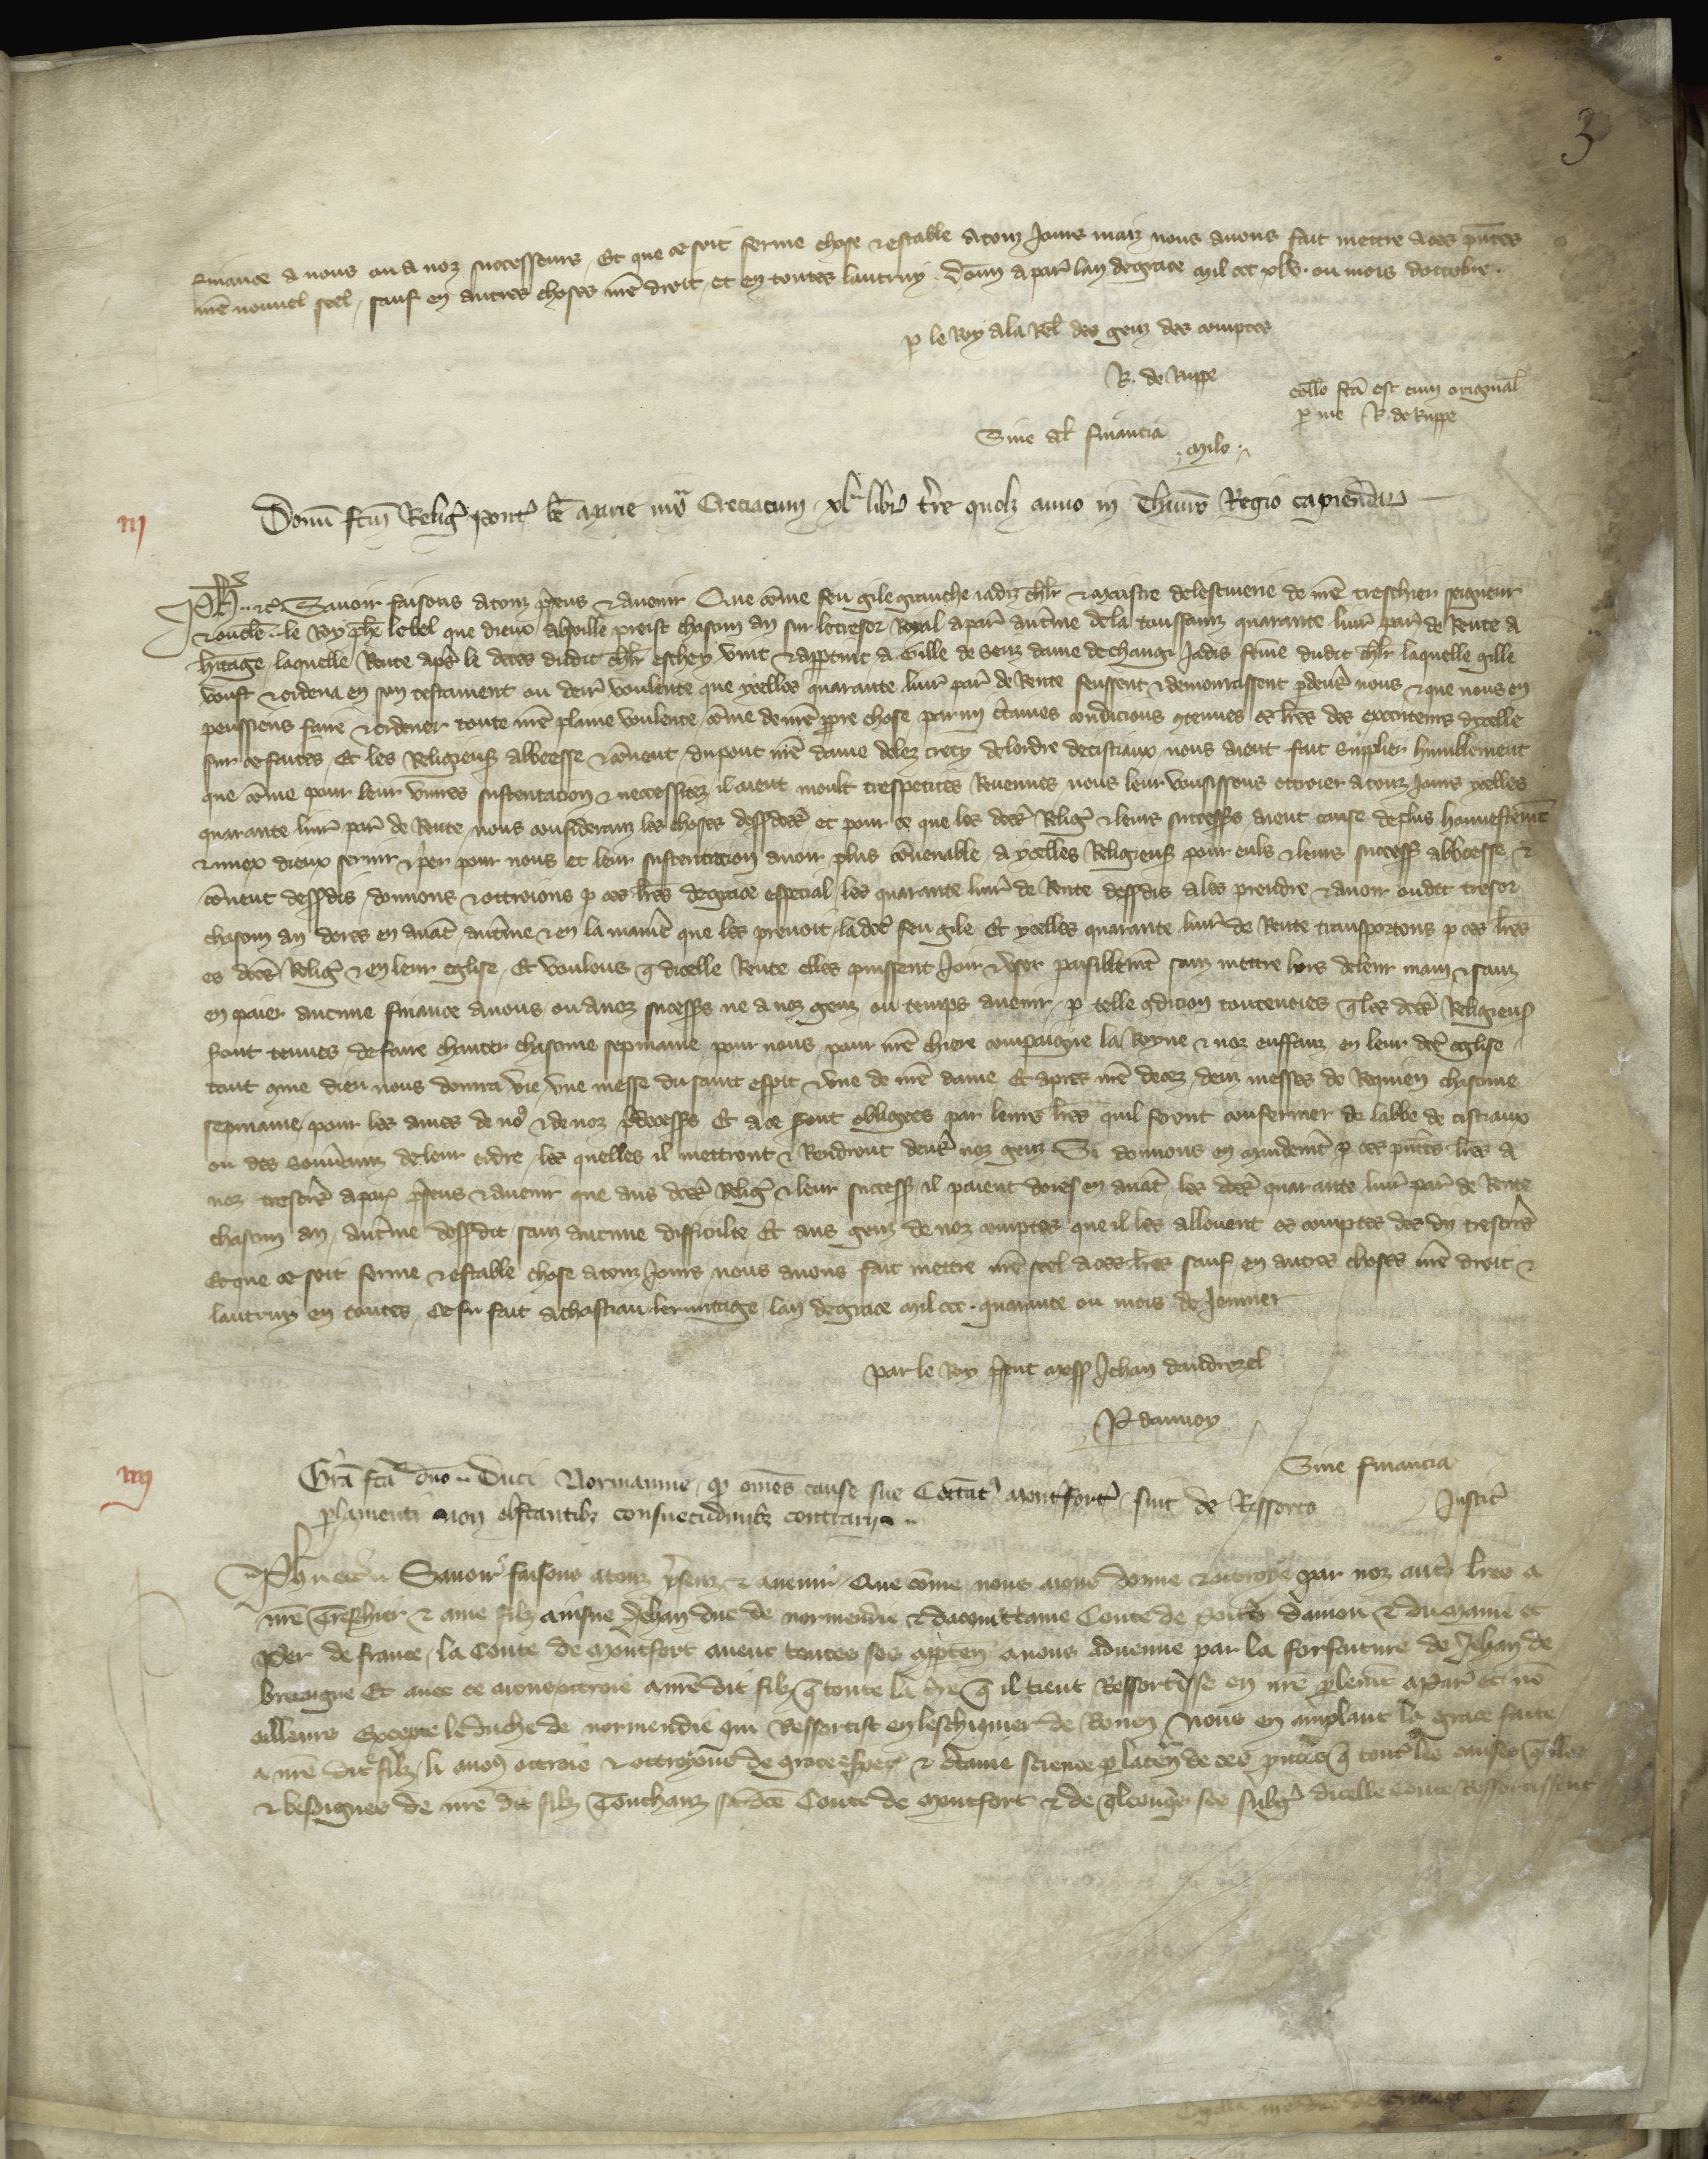 3
finance a nous ou a noz successeurs. Et que ce soit ferme chose & estable a touz jours mais nous avons fait mettre a ces pñtes
nrẽ nouvel seel, sauf en autres choses nrẽ droit, et en toutes lautruy. Donñ a par̃ lan de grace mil ccc xlv. ou mois doctobre.
p le Roy a la rel̃ des genz des comptes
R. de Ruppe
coll̃o fcã est cum original̃
p me R. de Ruppe
Sine al̃ financia
Milo
iij
Donũ fcm̃ Relig̃ Pont̃ bẽ Marie Creciacum xl libr̃ t̃re quol̃z anno in Thauro Regio capiendar̃
Ph̃. &c. Savoir faisons a touz p̃sens & avenir Que cõme feu gile granche jadiz ch̃lr & maistre de lescuierie de nrẽ treschier seigneur
& oncle le Roy ph̃e lebel que dieux absoille preist chascun an sur le tresor Royal a par̃ au t̃me de la toussainz quarante livr̃ par̃ de Rente a
h̃itage, laquelle Rente apr̃s le deces dudit ch̃lr eschey vint & appartint a Gille de Senz dame de changi jadis fem̃e dudit ch̃lr laquelle gille
voust & ordena en son testament ou deir̃ voulente que ycelles quarante livr̃ par̃ de Rente feussent & demourassent p devers nous & que nous en
peussiens faire & ordener toute nrẽ plaine voulente, cõme de nrẽ ppre chose, parmi c̃taines condicions 9tenues es lr̃es des executeurs dycelle
sur ce faites, Et les Religieuses abbeesse & cõvent du pont nrẽ dame delez crecy de lordre de cistiaux nous aient fait supplier humblement
que cõme pour leur vivres sustentacion & neccessitez, il aient moult trespetites Revenues nous leur vousissons ottroier a touz jours ycelles
quarante livr̃ par̃ de Rente, nous considerans les choses dessd̃ces et pour ce que les d̃ces Relig̃ & leurs success̃s aient cause de plus honnestem̃t
& miex dieux servir & p̃er pour nous et leur sustentacion avoir plus cõvenable, a ycelles Religieuses pour euls & leurs success̃ abbeesse &
cõvent dessd̃is, donnons & ottroions p ces lr̃es de grace especial, les quarante livr̃ de Rente dessd̃is a les prendre & avoir oudit tresor
chascun an dores en avãt, au t̃me & en la manie͂ que les prenoit, la dc̃e feu gile Et ycelles quarante livr̃ de Rente transportons p ces lr̃es
es d̃ces Relig̃ & en leur eglise, Et voulons q̃ dicelle Rente elles puissent joir & user paisiblem̃t sanz mettre hors de leur main & sanz
en paier aucune finance a nous, ou a noz success̃s ne a noz genz ou temps avenir, p telle 9dicion toutevoies q̃ les d̃ces Religieuses
sont tenues de faire chanter chascune sepmaine, pour nous, pour nrẽ chiere compaigne la Royne & noz enffanz en leur dc̃e eglise
tant 9me dieu nous donra vie, une messe du saint esp̃it & une de nrẽ dame, Et apres nrẽ deces, deux messes de Requiem chascune
sepmaine, pour les ames de no9 & de noz p̃decess̃s Et a ce sont obligees par leurs lr̃es quil feront confermer de labbe de cistiaux
ou des souv̂ains de leur ordre, les quelles il mettront & Rendront devers noz genz. Si donnons en mandem̃t p ces pñtes lr̃es a
noz tresor̃s a par̃ p̃sens & avenir que aus d̃ces Relig̃ & leur success̃ il paient dores en avãt, les d̃ces quarante livr̃ par̃ de Rente
chascun an, au t̃me dessdit sanz aucune difficulte Et aus genz de noz comptes que il les allouent es comptes desdiz tresor̃s
Et que ce soit ferme & estable chose a touz jours nous avons fait mettre nrẽ seel a ces lr̃es sauf en autres choses nrẽ droit &
lautruy en toutes. Ce fu fait a chastiau lermitage, lan de grace mil ccc. quarante ou mois de Jenvier
Par le Roy p̃sent mess̃ Jehan dandrezel
P daunoy
Sine financia
iiij
Grã fcã dño Duci Normannie, q̃ om̃es cause sue Comitat9 Montfort9, sint de Ressorto Justic̃
p̃lamenti non obstantib9 consuetudinib9 contrarijs
Ph̃ &c. Savoir faisons a touz p̃senz & avenir, Que cõme nous aions donne & ottroye par noz aut̃s lr̃es a
nrẽ treschier & ame filz ainsne Jehan duc de normendie & dacquittanie Conte de poit̃s danjou & du maine et
Per de france, la Conte de Montfort avec toutes ses apparten̂ a nous advenue par la forfaiture de Jehan de
bretaigne Et avec ce aions ottroie a nrẽ dit filz q̃ toute la t̃re q̃ il tient Ressortisse en nrẽ p̃lement a Par̃ et nõ
ailleurs Excepte le duche de normendie qui Ressortist en leschiquier de Rouen, Nous en ampliant la grace faite
a nrẽ dit filz, li avons ottroie & ottroyons de grace espec̃ & c̃taine science p la ten̂ de ces pñtes q̃ toutes les causes q̃lles
& besoignes de nrẽ dit filz touchanz sad̃ce Conte de Montfort & de q̃lconq̃s ses subg̃ dicelle Conte Ressortissent